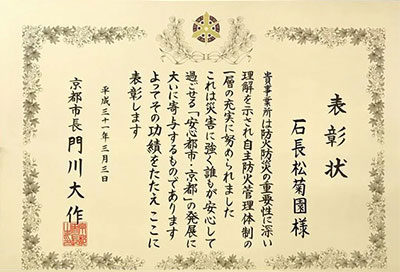 表彰状
石長松菊園様
貴事業所は防火防災の重要性に深い
理解を示され自主防火管理体制の
一層の充実に努められました
これは災害に強く誰もが安心して
過ごせる「安心都市・京都」の発展に
大いに寄与するものであります
よってその功績をたたえここに
表彰します
平成三十一年三月三日
京都市長 門川大作